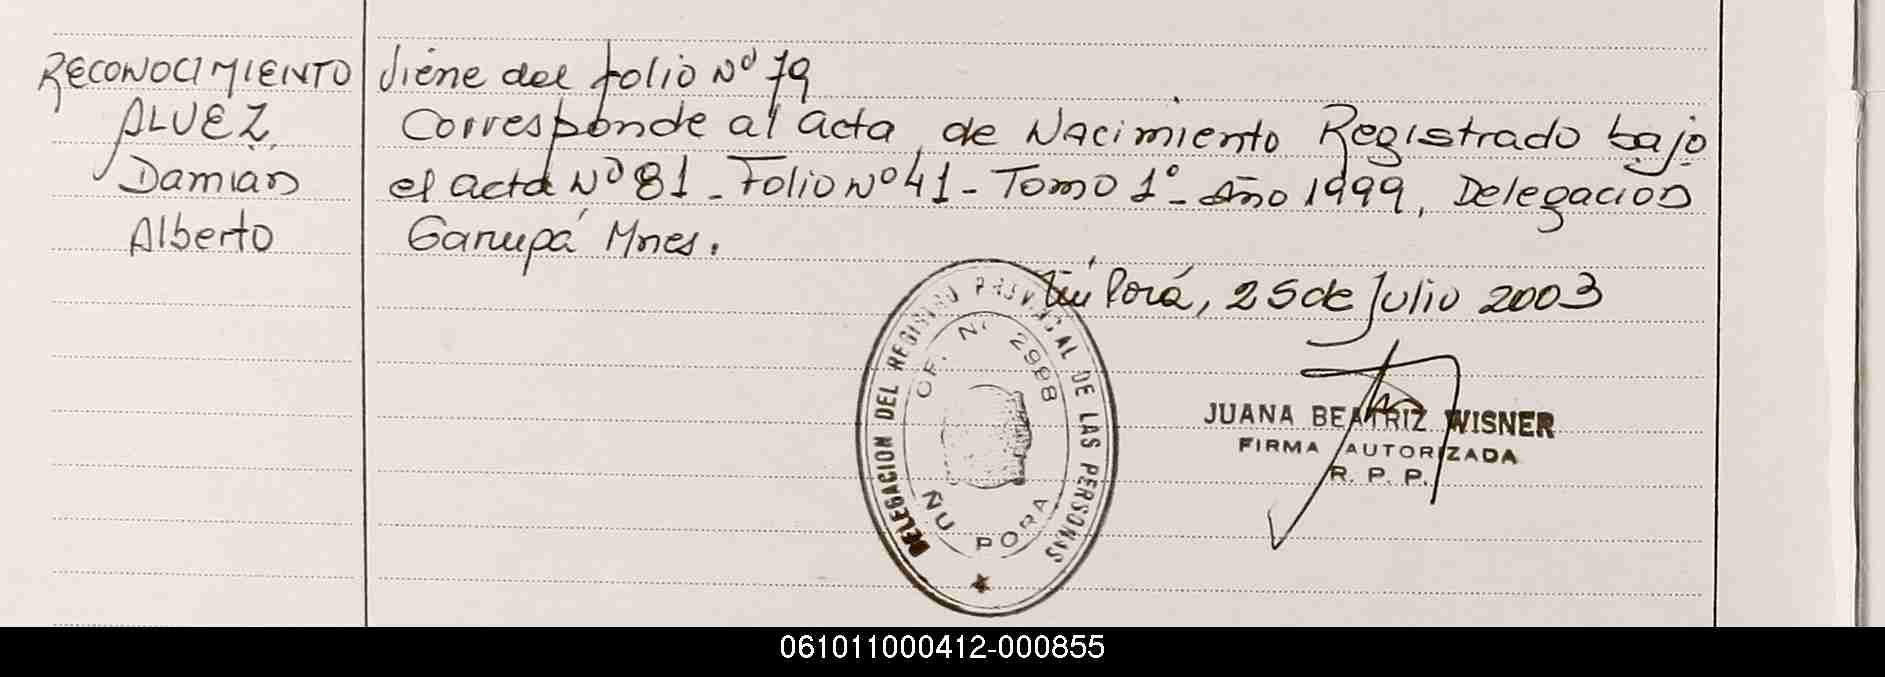 RECONOCIMIENTO
ALVEZ,
Damian
Alberto
Viene del folio Nº 79
Corresponde al acta de Nacimiento Registrado bajo
el acta Nº 81 - Folio Nº 41 - Tomo 1º - Año 1999, Delegacion
Garupá Mnes.
Ñu Porá, 25 de Julio 2003
DELEGACION DEL REGISTRO PROVINCIAL DE LAS PERSONAS
OF. Nº 2988
ÑU PORA
JUANA BEATRIZ WISNER
FIRMA AUTORIZADA
R. P. P.
061011000412-000855